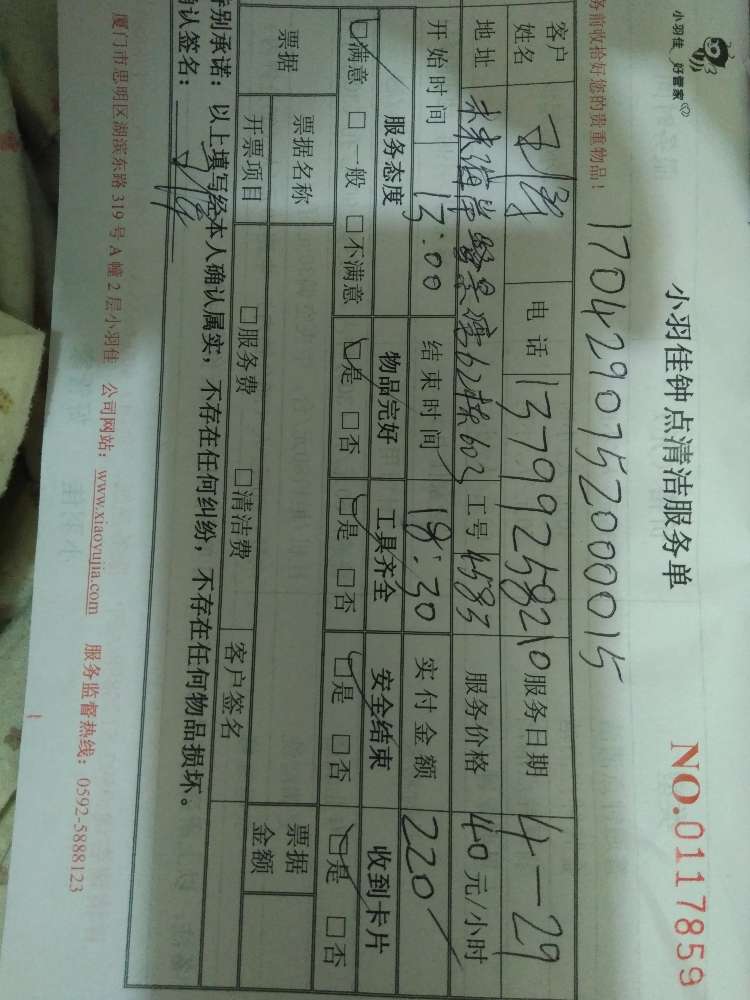 小羽佳 好管家
小羽佳钟点清洁服务单
NO.0117859
1704290752000015
务前收拾好您的贵重物品!
客户姓名 电话 13799258210 服务日期 4-29
地址 未来海岸 62栋602 工号 4583 服务价格 40元/小时
开始时间 13:00 结束时间 18:30 实付金额 220
服务态度 物品完好 工具齐全 安全结束 收到卡片
☑满意 □一般 □不满意 ☑是 □否 ☑是 □否 ☑是 □否 ☑是 □否
票据 票据名称 票据金额
开票项目 □服务费 □清洁费 客户签名
特别承诺:以上填写经本人确认属实,不存在任何纠纷,不存在任何物品损坏。
确认签名:
厦门市思明区湖滨东路319号A幢2层小羽佳 公司网站:www.xiaoyujia.com 服务监督热线:0592-5888123